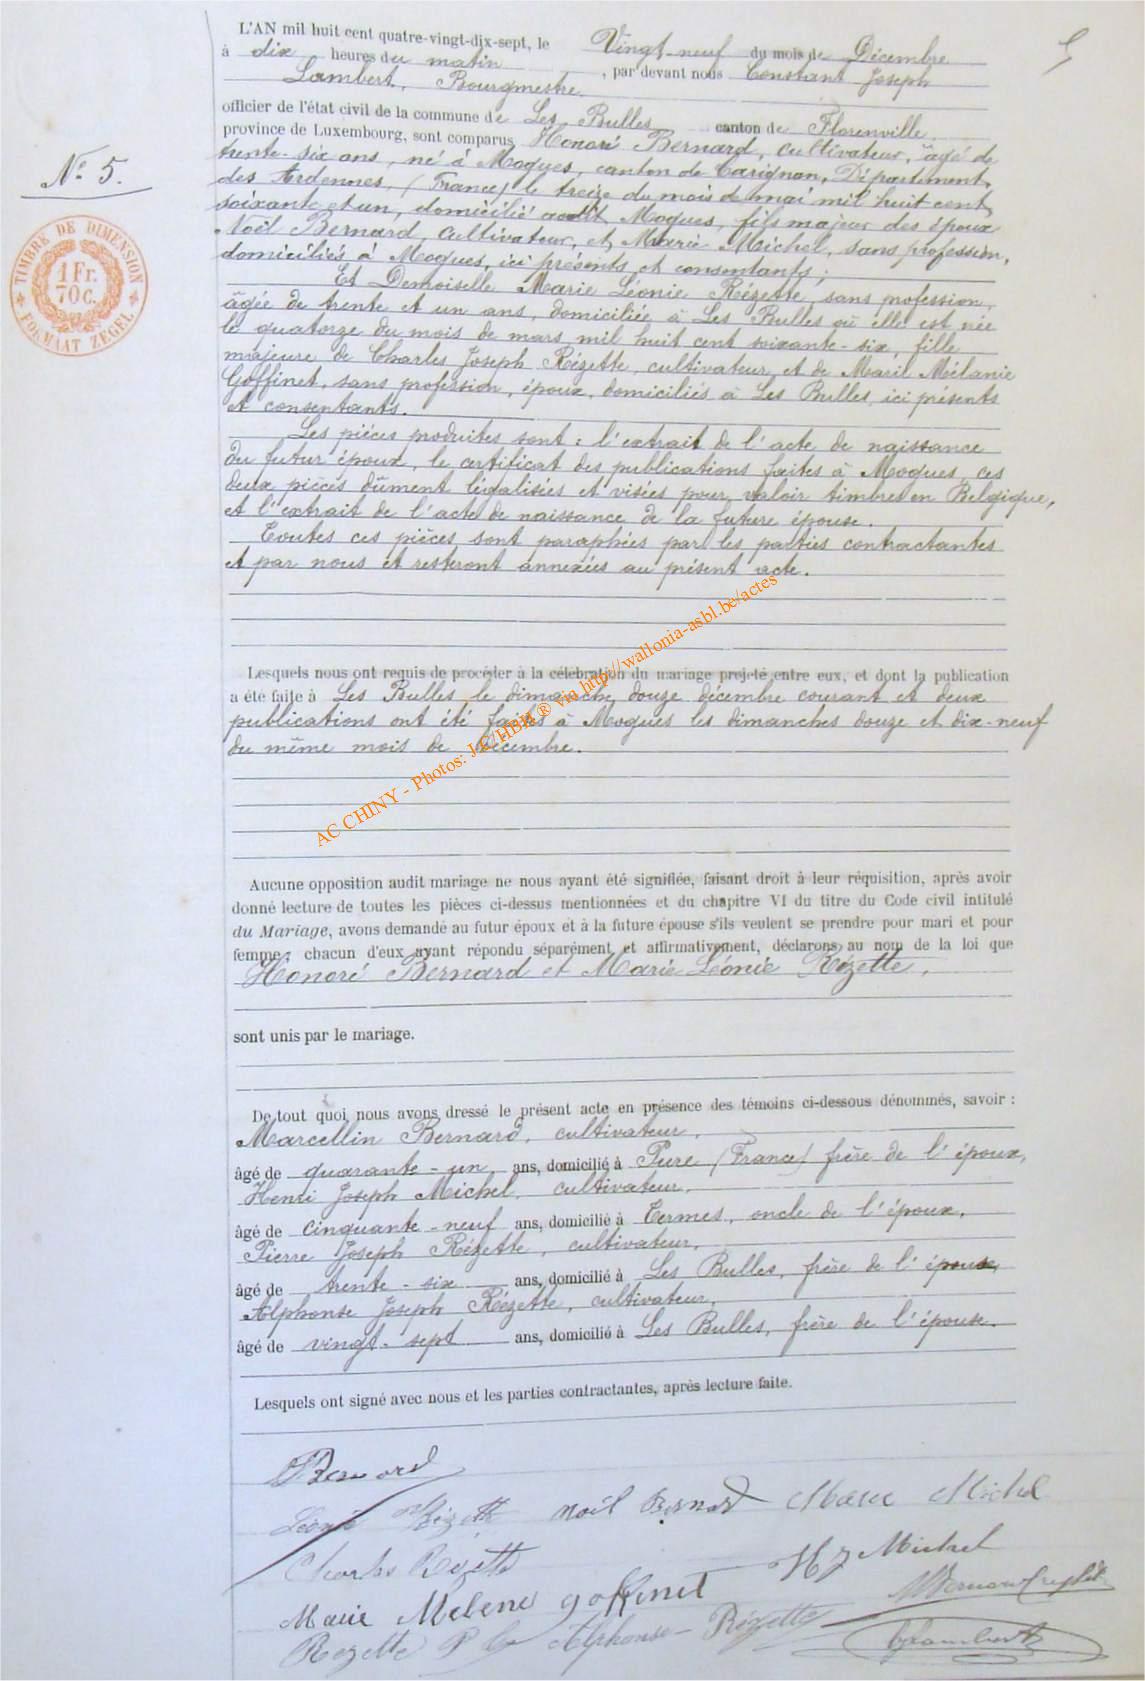 5
L'AN mil huit cent quatre-vingt-dix-sept, le Vingt-neuf du mois de Décembre
à dix heures du matin, par devant nous Constant Joseph
Lambert, Bourgmestre
officier de l'état civil de la commune de Les Bulles canton de Florenville,
province de Luxembourg, sont comparus Honoré Bernard, cultivateur, âgé de
trente-six ans, né à Mogues, canton de Carignan, Département
des Ardennes, (France) le treize du mois de mai mil huit cent
soixante et un, domicilié audit Mogues, fils majeur des époux
Noël Bernard, cultivateur, et Marie Michel, sans profession,
domiciliés à Mogues, ici présents et consentants;
Et Demoiselle Marie Léonie Rézette, sans profession,
âgée de trente et un ans, domiciliée à Les Bulles où elle est née
le quatorze du mois de mars mil huit cent soixante-six, fille
majeure de Charles Joseph Rézette, cultivateur, et de Maril Mélanie
Goffinet, sans profession, époux, domiciliés à Les Bulles, ici présents
et consentants.
Les pièces produites sont : l'extrait de l'acte de naissance
du futur époux, le certificat des publications faites à Mogues, ces
deux pièces dûment légalisées et visées pour valoir timbre en Belgique,
et l'extrait de l'acte de naissance de la future épouse.
Toutes ces pièces sont paraphées par les parties contractantes
et par nous et resteront annexées au présent acte.
N° 5.
TIMBRE DE DIMENSION
1 Fr.
70 C.
FORMAAT ZEGEL
AC CHINY - Photos: J.C/HBH ® via http://wallonia-asbl.be/actes
Lesquels nous ont requis de procéder à la célébration du mariage projeté entre eux, et dont la publication
a été faite à Les Bulles, le dimanche douze décembre courant et deux
publications ont été faites à Mogues les dimanches douze et dix-neuf
du même mois de décembre.
Aucune opposition audit mariage ne nous ayant été signifiée, faisant droit à leur réquisition, après avoir
donné lecture de toutes les pièces ci-dessus mentionnées et du chapitre VI du titre du Code civil intitulé
du Mariage, avons demandé au futur époux et à la future épouse s'ils veulent se prendre pour mari et pour
femme; chacun d'eux ayant répondu séparément et affirmativement, déclarons au nom de la loi que
Honoré Bernard et Marie Léonie Rézette,
sont unis par le mariage.
De tout quoi nous avons dressé le présent acte en présence des témoins ci-dessous dénommés, savoir :
Marcellin Bernard, cultivateur,
âgé de quarante-un ans, domicilié à Pure (France) frère de l'époux,
Henri Joseph Michel, cultivateur,
âgé de cinquante-neuf ans, domicilié à Termes, oncle de l'époux,
Pierre Joseph Rézette, cultivateur,
âgé de trente-six ans, domicilié à Les Bulles, frère de l'épouse,
Alphonse Joseph Rézette, cultivateur,
âgé de vingt-sept ans, domicilié à Les Bulles, frère de l'épouse.
Lesquels ont signé avec nous et les parties contractantes, après lecture faite.
Bernard
Léonie Rézette Noël Bernard Marie Michel
Charles Rezette HJ Michel
Marie Mélenie goffinet MBernard
Rezette P Alphonse Rézette CJLambert